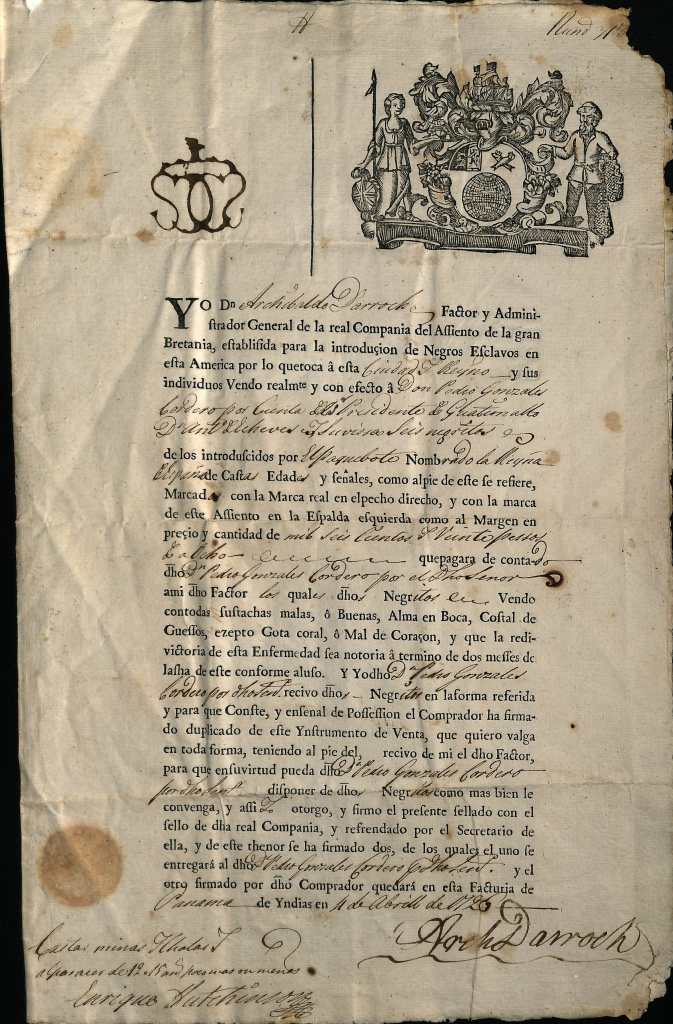 Yo Dn Archibaldo Darroch Factor y Admini-
strador General de la real Compania del Assiento de la gran
Bretania, establisida para la introduçion de Negros Esclavos en
esta America por lo quetoca â esta Ciudad I Reyno y sus
individuos Vendo realmte y con efecto â Don Pedro Gonzales
Cordero por Cuenta Presidente
Dn Antt Echeves I Suviera Seis negritos
de los introduscidos por El Paquebote Nombrado la Reyna
de Castas Edades y señales, como alpie de este se refiere,
Marcados con la Marca real en elpecho direcho, y con la marca
de este Assiento en la Espalda esquierda como al Margen en
preçio y cantidad de mil Seis Cientos I Veinte pessos
quepagara de contado
dho Dn Pedro Gonzales Cordero por el Dho Senor
ami dho Factor los quales dhos Negritos Vendo
contodas sustachas malas, ô Buenas, Alma en Boca, Costal de
Guessos, ezepto Gota coral, ô Mal de Coraçon, y que la redi-
victoria de esta Enfermedad sea notoria â termino de dos messes de
lasha de este conforme aluso. Y Yodho Dn Pedro Gonzales
Cordero por dho recivo dhos Negritos en laforma referida
y para que Conste, y ensenal de Possession el Comprador ha firma-
do duplicado de este Ynstrumento de Venta, que quiero valga
en toda forma, teniendo al pie del, recivo de mi el dho Factor,
para que ensuvirtud pueda dho Dn Pedro Gonzales Cordero
por dho disponer de dhos Negritos como mas bien le
convenga, y assi otorgo, y firmo el presente sellado con el
sello de dha real Compania, y refrendado por el Secretario de
ella, y de este thenor se ha firmado dos, de los quales el uno se
entregará al dho Dn Pedro Gonzales Cordero y el
otro firmado por dho Comprador quedará en esta Facturia de
Panama de Yndias en 4 de Abril de 1726
Arch Darroch
Castas minas
Enrique Hutchinson